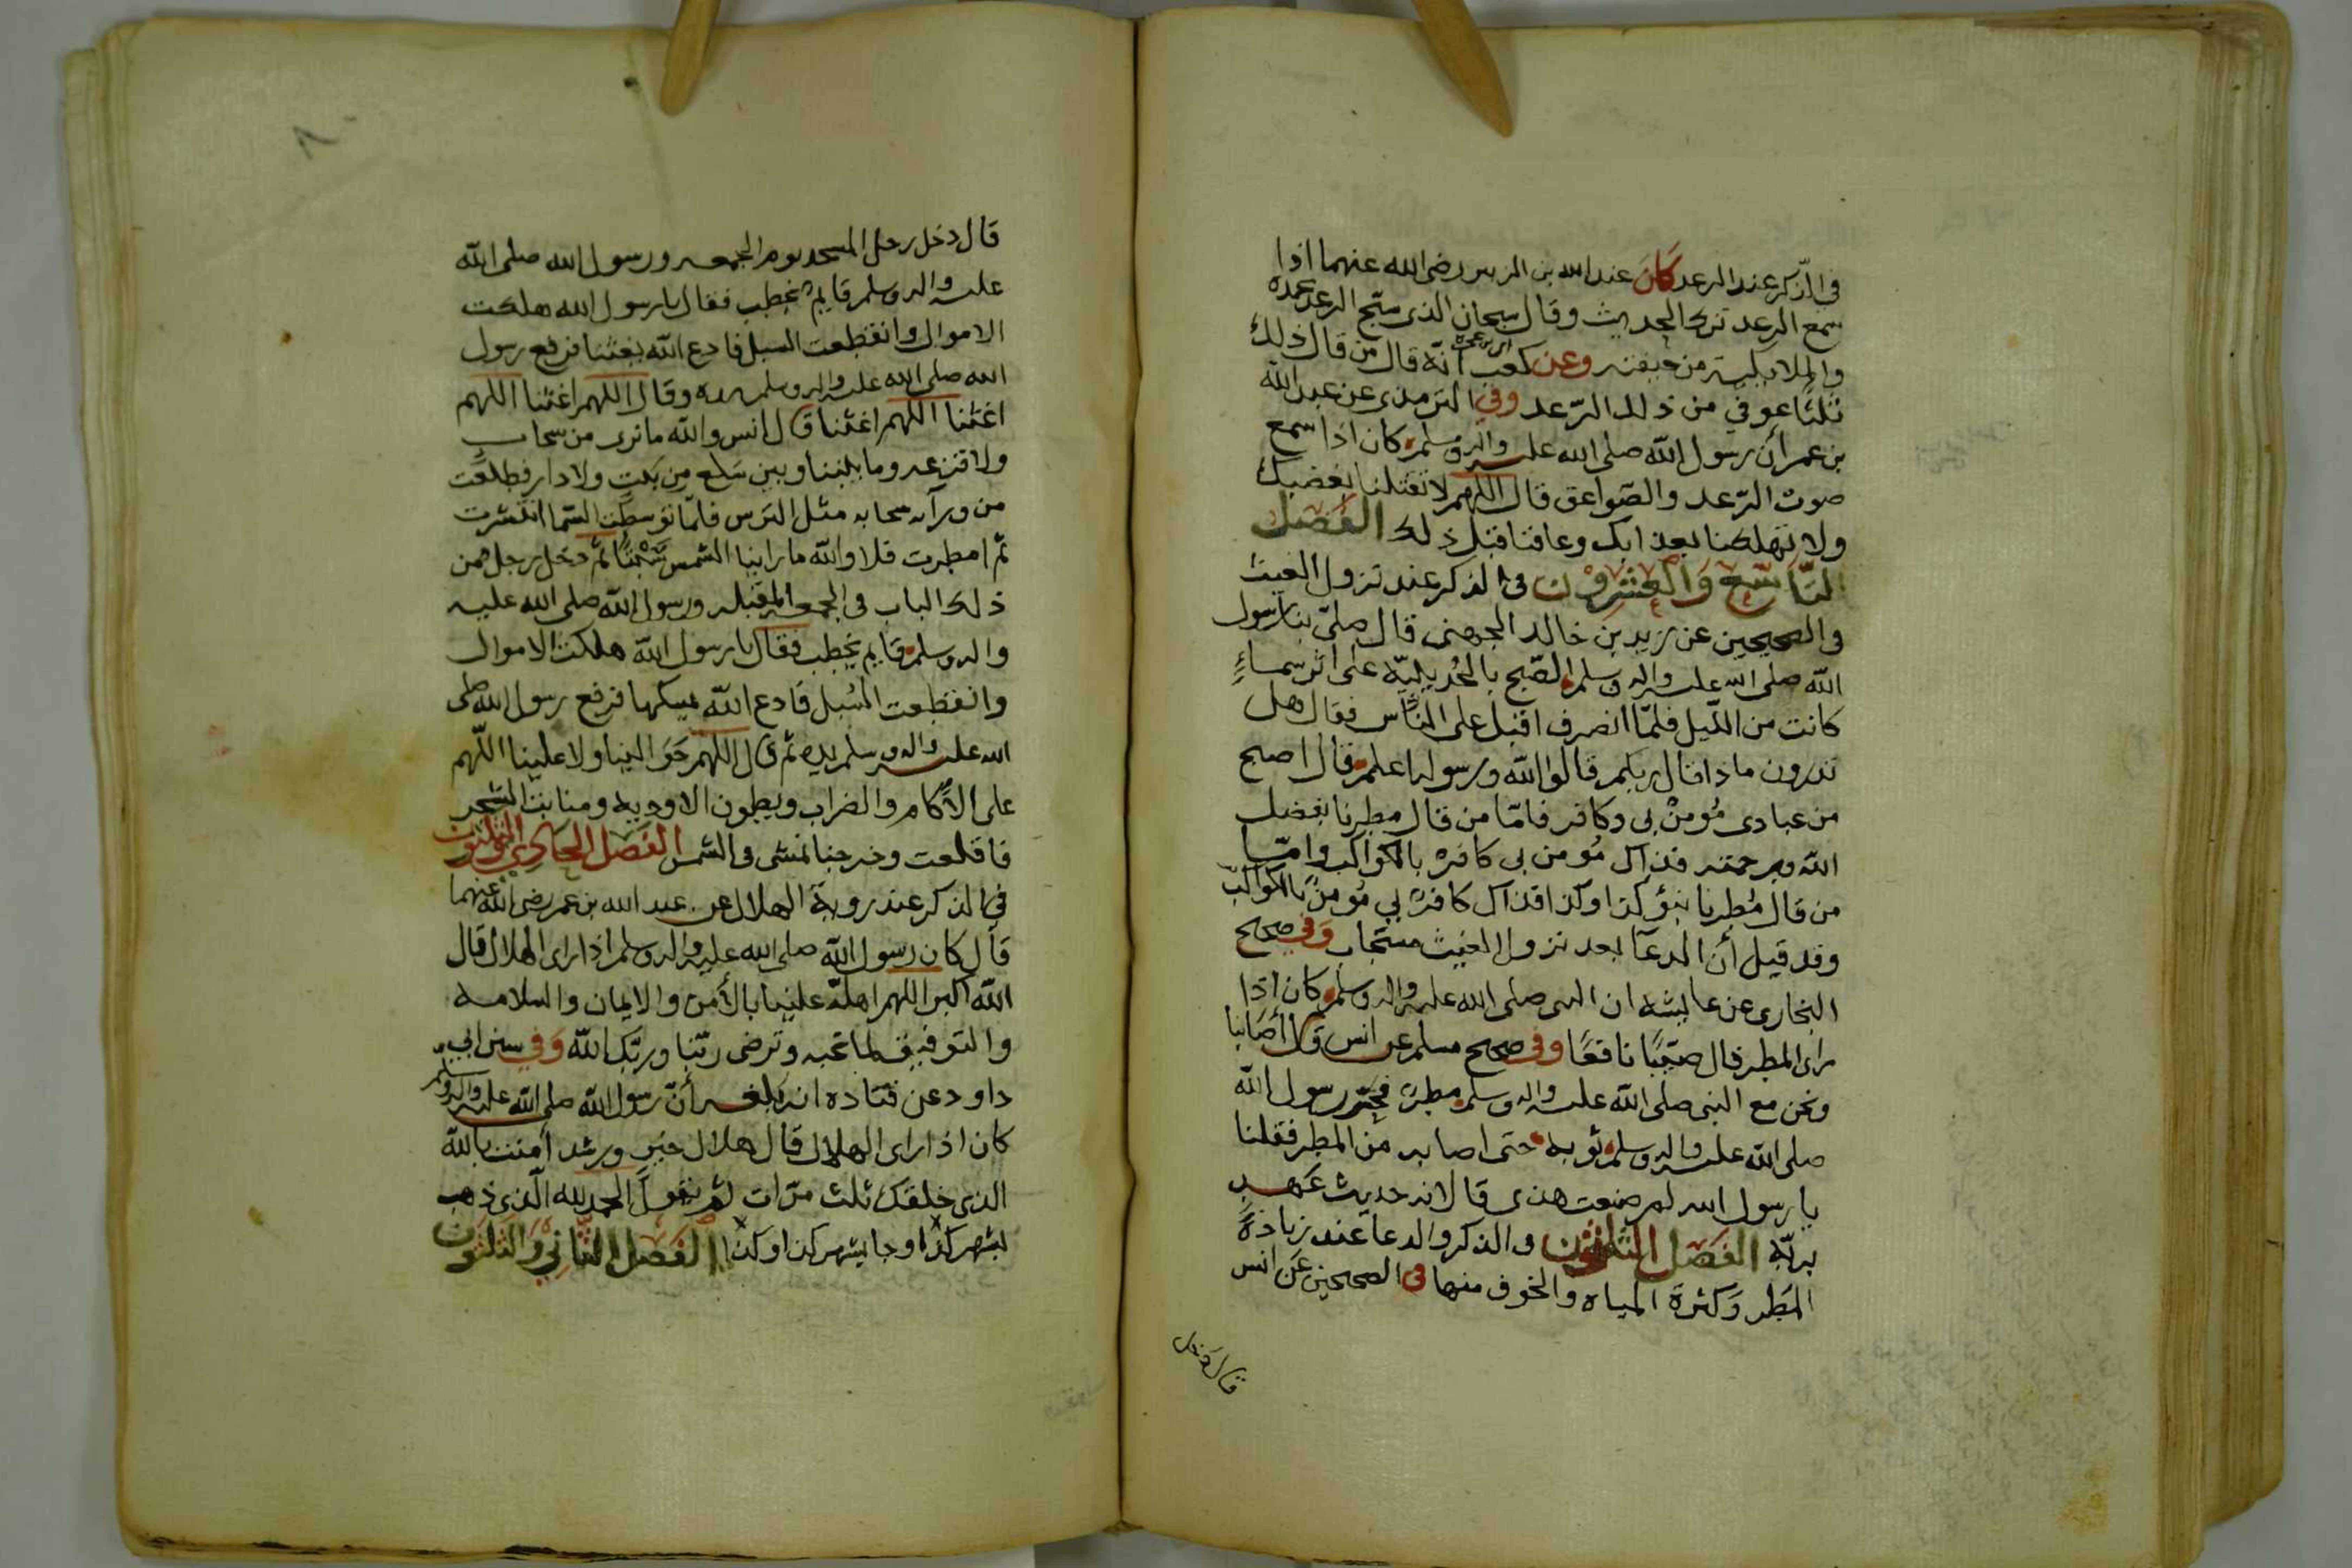 في الذكر عند الرعد كان عبد الله بن الزبير رضى الله عنهما اذا
سمع الرعد ترك الحديث وقال سبحان الذى سبح الرعد بحمده
والملايكة من خيفته وعن كعب انه قال من قال ذلك
ثلثا عوفي من ذلك الرعد وفي الترمذى عن عبد الله
بن عمر أن رسول الله صلى الله عليه واله وسلم كان اذا سمع
صوت الرعد والصواعق قال اللهم لا تقتلنا بغضبك
ولا تهلكنا بعذابك وعافنا قبل ذلك الفصل
التاسع والعشرون في الذكر عند نزول الغيث
في الصحيحين عن زيد بن خالد الجهنى قال صلى بنا رسول
الله صلى الله عليه واله وسلم الصبح بالحديبية على اثر سماءٍ
كانت من الليل فلما انصرف اقبل على الناس فقال هل
تدرون ماذا قال ربكم قالوا الله ورسوله اعلم قال اصبح
من عبادى مؤمن بي وكافر فاما من قال مطرنا بفضل
الله وبرحمته فذاك مؤمن بي كافر بالكواكب واما
من قال مُطرنا بنوْ كذا وكذا فذاك كافر بي مؤمن بالكواكب
وقد قيل أن الدعآ بعد نزول الغيث مستجاب وفي صحيح
البخارى عن عايشه ان النبى صلى الله عليه واله وسلم كان اذا
راى المطر قال صيّبًا نافعًا وفي صحيح مسلم عن انس قال أصابنا
ونحن مع النبى صلى الله عليه واله وسلم مطر فحسر رسول الله
صلى الله عليه واله وسلم ثوبه حتى اصابه من المطر فقلنا
يا رسول الله لم صنعت هذى قال لانه حديث عهد
بربّه الفصل الثلاثون في الذكر والدعا عند زيادة
المطر وكثرة المياه والخوف منها في الصحيحين عن انس
قال دخل
٨٠
قال دخل رجل المسجد يوم الجمعه ورسول الله صلى الله
عليه واله وسلم قايم يخطب فقال يا رسول الله هلكت
الاموال وانقطعت السبل فادع الله يغثنا فرفع رسول
الله صلى الله عليه واله وسلم يديه وقال اللهم اغثنا اللهم
اغثنا اللهم اغثنا قال انس والله ما نرى من سحاب
ولا قزعه وما بيننا وبين سَلع من بيت ولا دار فطلعت
من ورآيه سحابه مثل الترس فلما توسطت السما انتشرت
ثم امطرت فلا والله ما راينا الشمس سَبْتًا ثم دخل رجل من
ذلك الباب في الجمعه المقبله ورسول الله صلى الله عليه
واله وسلم قايم يخطب فقال يا رسول الله هلكت الاموال
وانقطعت السُبل فادع الله يمسكها فرفع رسول الله صلى
الله عليه واله وسلم يديه ثم قال اللهم حَوَالينا ولا علينا اللهم
على الآكام والضراب وبطون الاوديه ومنابت الشجر
فاقلعت وخرجنا نمشى في الشمس الفصل الحادي والثلثون
في الذكر عند روية الهلال عن عبد الله بن عمر رضى الله عنهما
قال كان رسول الله صلى الله عليه واله وسلم اذا راى الهلال قال
الله اكبر اللهم اهله علينا بالأمن والايمان والسلامه
والتوفيق لما تحبه وترضى ربّنا وربّك الله وَفي سنن ابي
داود عن قتاده انه بلغه أنّ رسول الله صلى الله عليه واله وسلم
كان اذا راى الهلال قال هلال خير ورشد آمنت بالله
الذى خلقك ثلث مرّات ثم يقول الحمد لله الّذى ذهب
بشهر كذا وجا بشهر كذا وكذا الفصل الثاني والثلثون